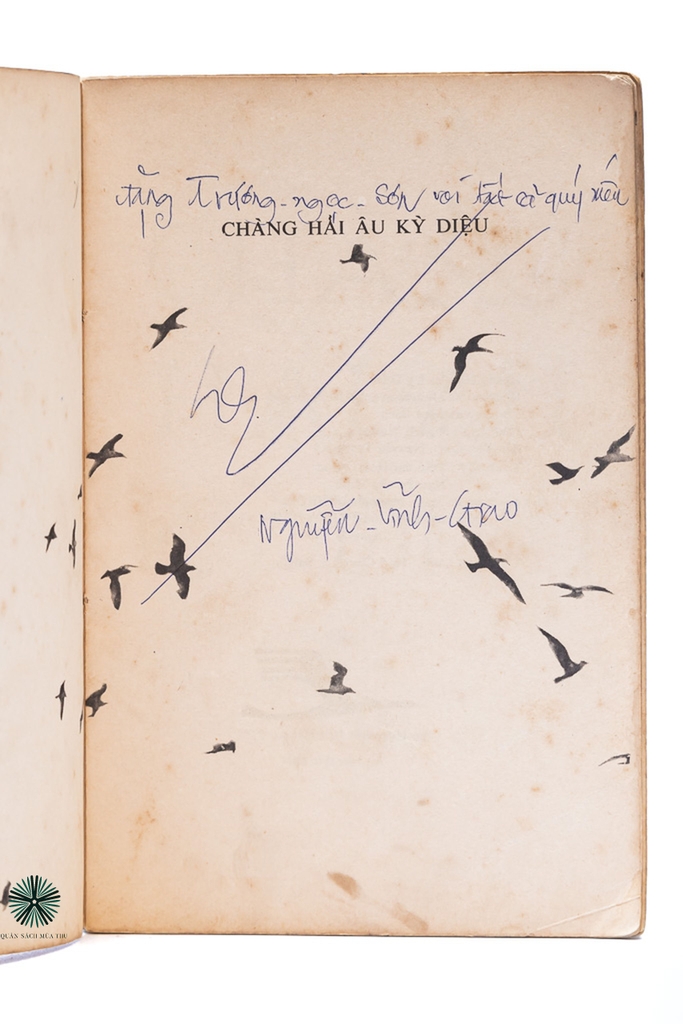 tặng Trương-ngọc-Sơn với tất cả quý mến
CHÀNG HẢI ÂU KỲ DIỆU
Nguyễn-Vĩnh-
QUÁN SÁCH MÙA THU